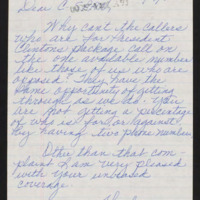 Dear C
Why can't the callers
who are for President
Clinton's package call on
the one available number
like those of us who are
opposed. They have the
same opportunity of getting
through as we do. You
are not getting a percentage
of who is for or against
by having two phone numbers
Other than that com-
plaint I am very pleased
with your unbiased
coverage.